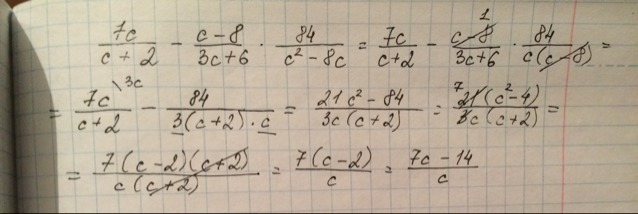 7c/(c + 2) - (c - 8)/(3c + 6) · 84/(c² - 8c) = 7c/(c + 2) - (c - 8)¹/(3c + 6) · 84/(c(c - 8)) =
= 7c\3c/(c + 2) - 84/(3(c + 2) · c) = (21c² - 84)/(3c(c + 2)) = ⁷21(c² - 4)/(3c(c + 2)) =
= 7(c - 2)(c + 2)/(c(c + 2)) = 7(c - 2)/c = (7c - 14)/c